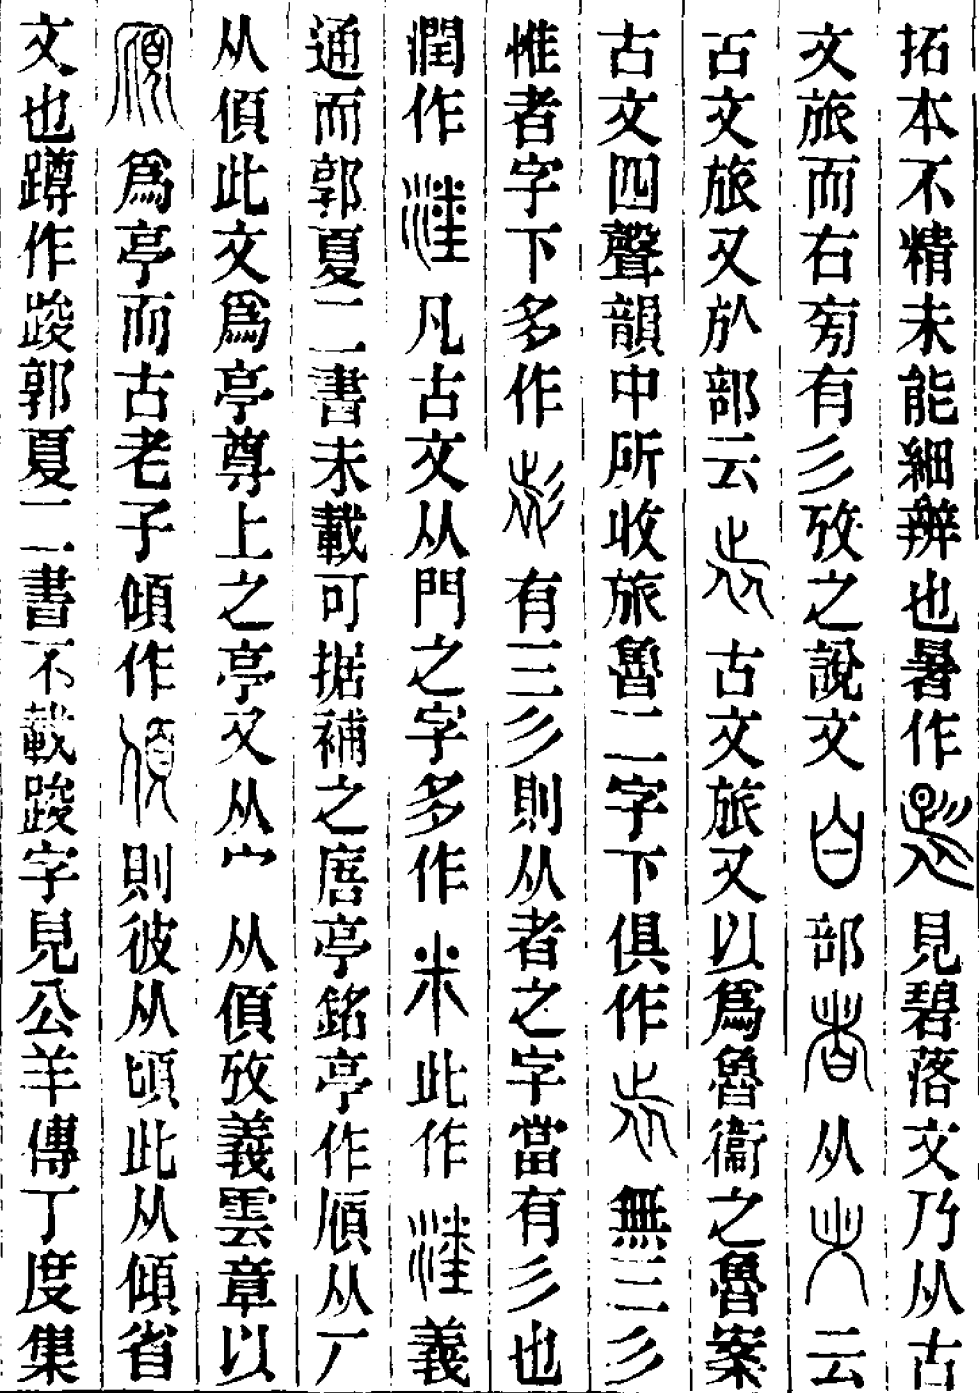 拓本不精未能細辨也暑作見碧落文乃从古
文旅而右旁有彡攷之說文部从云
古文旅又㫃部云古文旅又以爲魯衞之魯案
古文四聲韻中所收旅魯二字下俱作無三彡
惟者字下多作有三彡則从者之字當有彡也
潤作凡古文从門之字多作此作義
通而郭夏二書未載可据補之㢈亭銘亭作傾从厂
从傎此文爲亭尊上之亭又从宀从傎攷義雲章以
爲亭而古老子傾作則彼从頃此从傾省
文也蹲作踆郭夏二書不載踆字見公羊傳丁度集